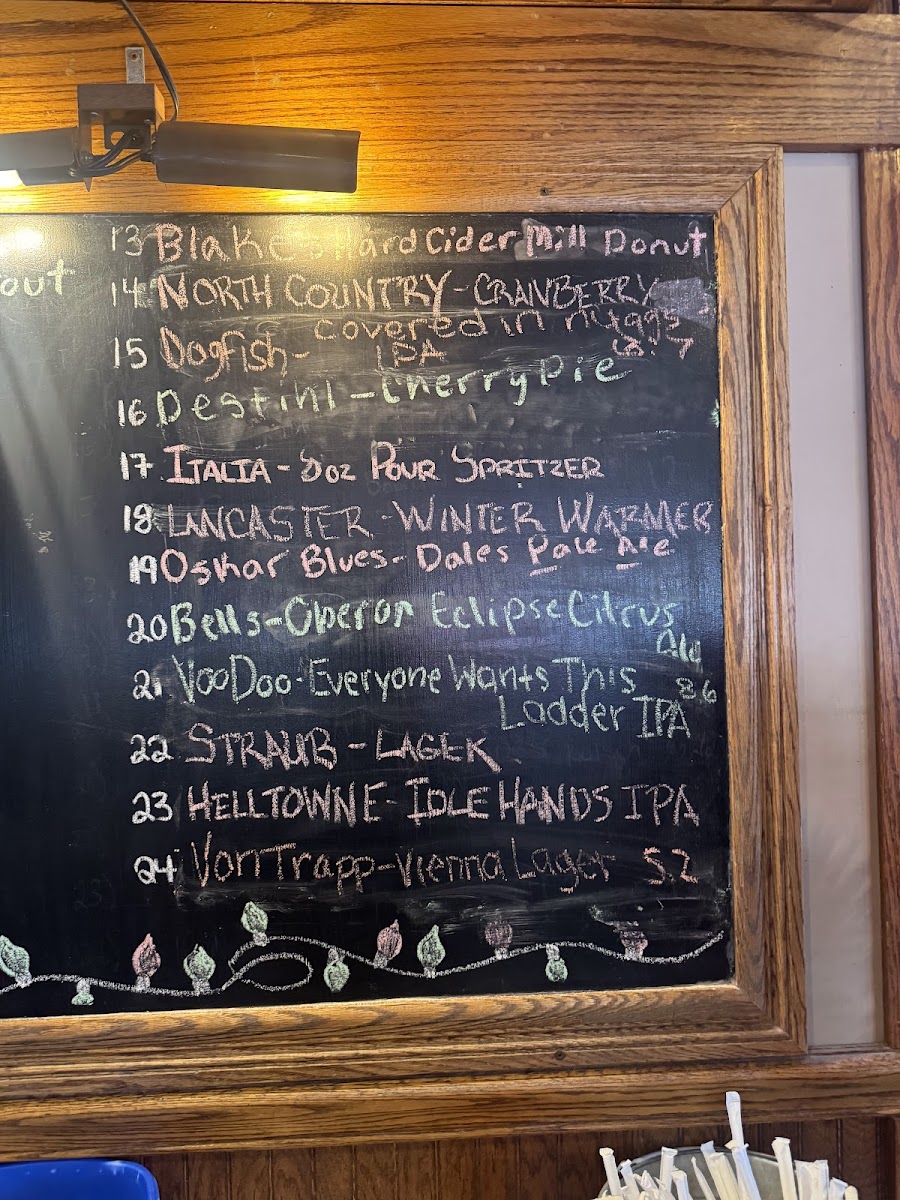 out
13 Blake's Hard Cider Mill Donut
14 NORTH COUNTRY - CRANBERRY
covered in nuggs
15 Dogfish - IPA 8.7
16 Destihl - Cherry Pie
17 ITALIA - 8oz POUR SPRITZER
18 LANCASTER - WINTER WARMER
19 Oskar Blues - Dales Pale Ale
20 Bells - Oberon Eclipse Citrus
Ale
21 VooDoo - Everyone Wants This 8.6
Ladder IPA
22 STRAUB - LAGER
23 HELLTOWNE - IDLE HANDS IPA
24 VonTrapp - Vienna Lager 5.2